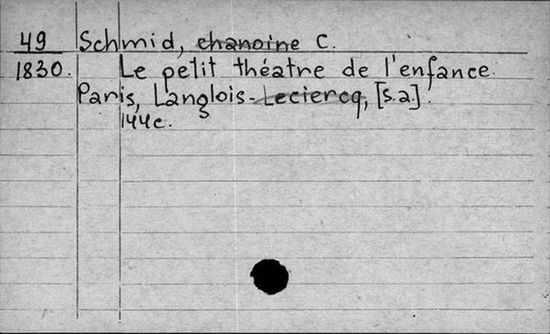 49 Schmid, chanoine C.
1830. Le petit théatre de l'enfance.
Paris, Langlois-Leciercq, [s.a.].
144c.